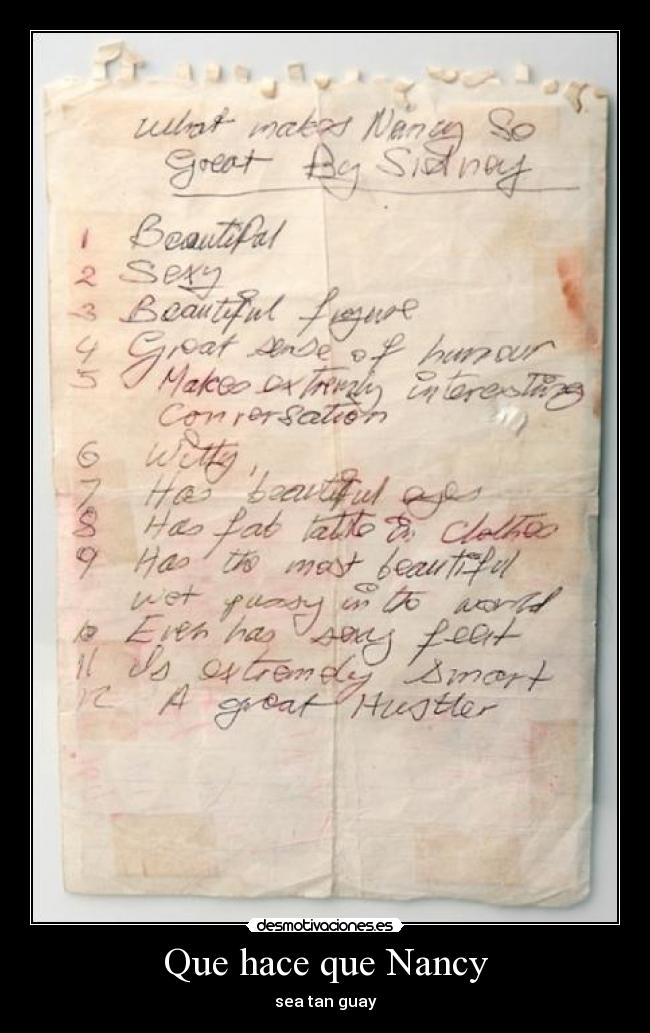 What makes Nancy So
Great By Sidney
1 Beautiful
2 Sexy
3 Beautiful figure
4 Great sense of humour
5 Makes extremly interesting
Conversation
6 Witty
7 Has beautiful eyes
8 Has fab taste in clothes
9 Has the most beautiful
wet pussy in the world
10 Even has sexy feet
11 Is extremely smart
12 A great Hustler
desmotivaciones.es
Que hace que Nancy
sea tan guay